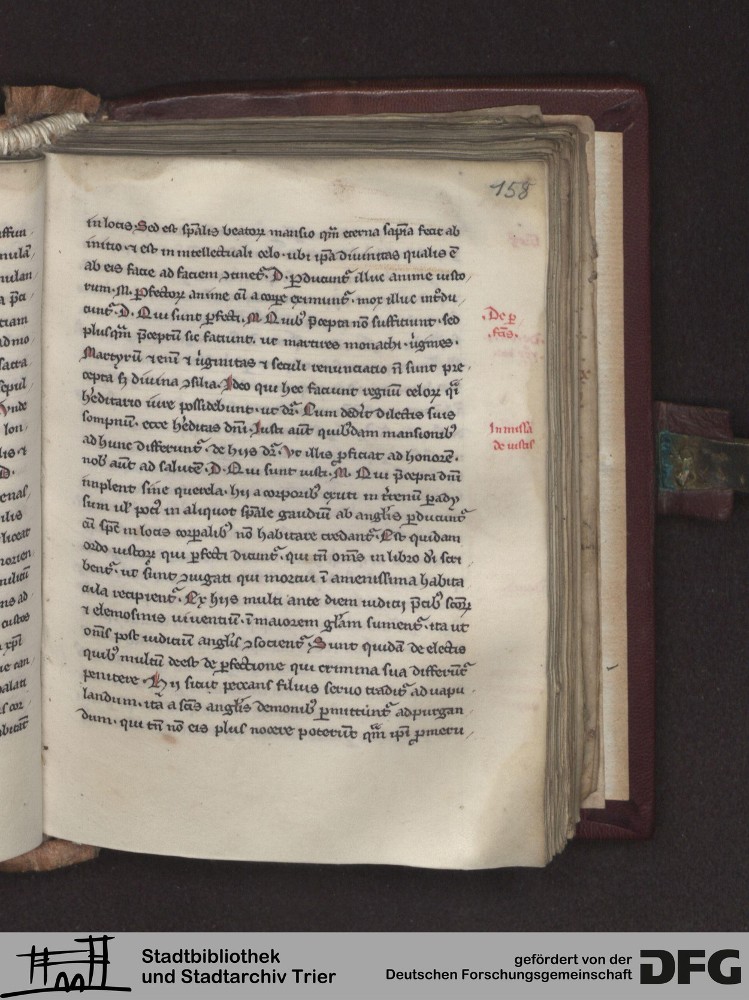 158
in locis. Sed est sp̄alis beatoꝝ mansio qm̄ eterna sapīa fecit ab
initio. ⁊ est in intellectuali celo. ubi ip̄a diuinitas qualis ē
ab eis facie ad faciem ꝯtinet᷑. D. ꝑducunt᷑ illuc anime iusto
rum. M. ꝑfectoꝝ anime cū a corꝑe eximunt᷑. mox illuc int᷑du
cunt᷑. D. Qui sunt ꝑfecti. M. Quibꝰ p̄cepta nō sufficiunt. sed
plusqm̄ p̄ceptū sit faciunt. ut martires monachi. uirgines.
Martyriū ⁊ enī ⁊ uirginitas ⁊ seculi renunciacio n̄ sunt pre
cepta sꝫ diuina ꝯsilia. Ideo qui hec faciunt regnū celoꝝ q̄i
hereditario iure possidebunt. ut dr̄. Cum dederit dilectis suis
sompnū. ecce hereditas dn̄i. Iusti aut̄ quibꝰdam mansionibꝰ
ad hunc differunt᷑. de hijs dr̄. Vt illis ꝓficiat ad honorē.
nob̄ aut̄ ad salutē. D. Qui sunt iusti. M. Qui p̄cepta dn̄i
implent sine querela. hij a corporibꝰ exuti in t̄renū ꝑady
sum ul̓ pociꝰ in aliquot sp̄ale gaudiū ab angl̓is ꝑducunt᷑
cū sp̄c in locis corꝑalibꝰ nō habitare credant᷑. Est quidam
ordo iustoꝝ qui ꝑfecti dicunt᷑. qui tn̄ om̄s in libro di sc̄i
bent᷑. ut sunt ꝯiugati qui mortui ī amenissima habita
cula recipient᷑. Ex hijs multi ante diem iudicij p̄cibꝰ sc̄oꝝ
⁊ elemosinis uiuentiū. ī maiorem gl̄am sument᷑. ita ut
om̄s post iudiciū angl̓is ꝯsocient᷑. Sunt quidā de electis
quibꝰ multū deest de ꝑfectione qui crimina sua differūt᷑
penitere. Hij sicut peccans filius seruo tradit᷑ ad uapu
landum. ita a sc̄is angl̓is demonibꝰ ꝑmittunt᷑ ad purgan
dum. qui tn̄ nō eis plus nocere poterūt qm̄ ip̄i ꝓmeru
De ꝑ
fc̄is.
In missa
de iustis
Stadtbibliothek
und Stadtarchiv Trier
gefördert von der
Deutschen Forschungsgemeinschaft
DFG